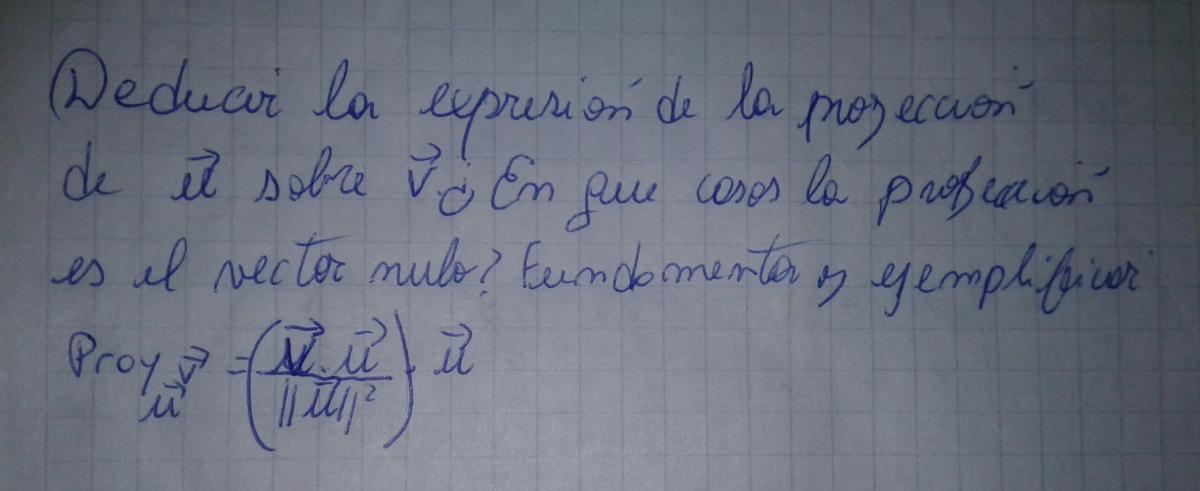 Deducir la expresión de la proyección
de u⃗ sobre v⃗. ¿En que casos la proyección
es el vector nulo? Fundamentar y ejemplificar
Proy v⃗ = (v⃗ . u⃗ / ||u⃗||²) . u⃗
u⃗